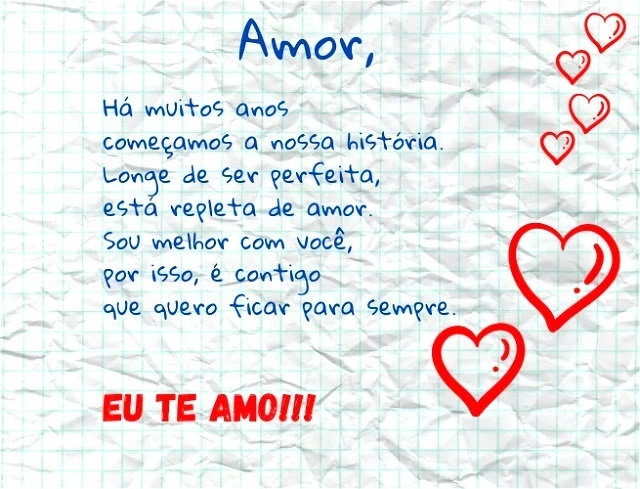 Amor,
Há muitos anos
começamos a nossa história.
Longe de ser perfeita,
está repleta de amor.
Sou melhor com você,
por isso, é contigo
que quero ficar para sempre.
EU TE AMO!!!